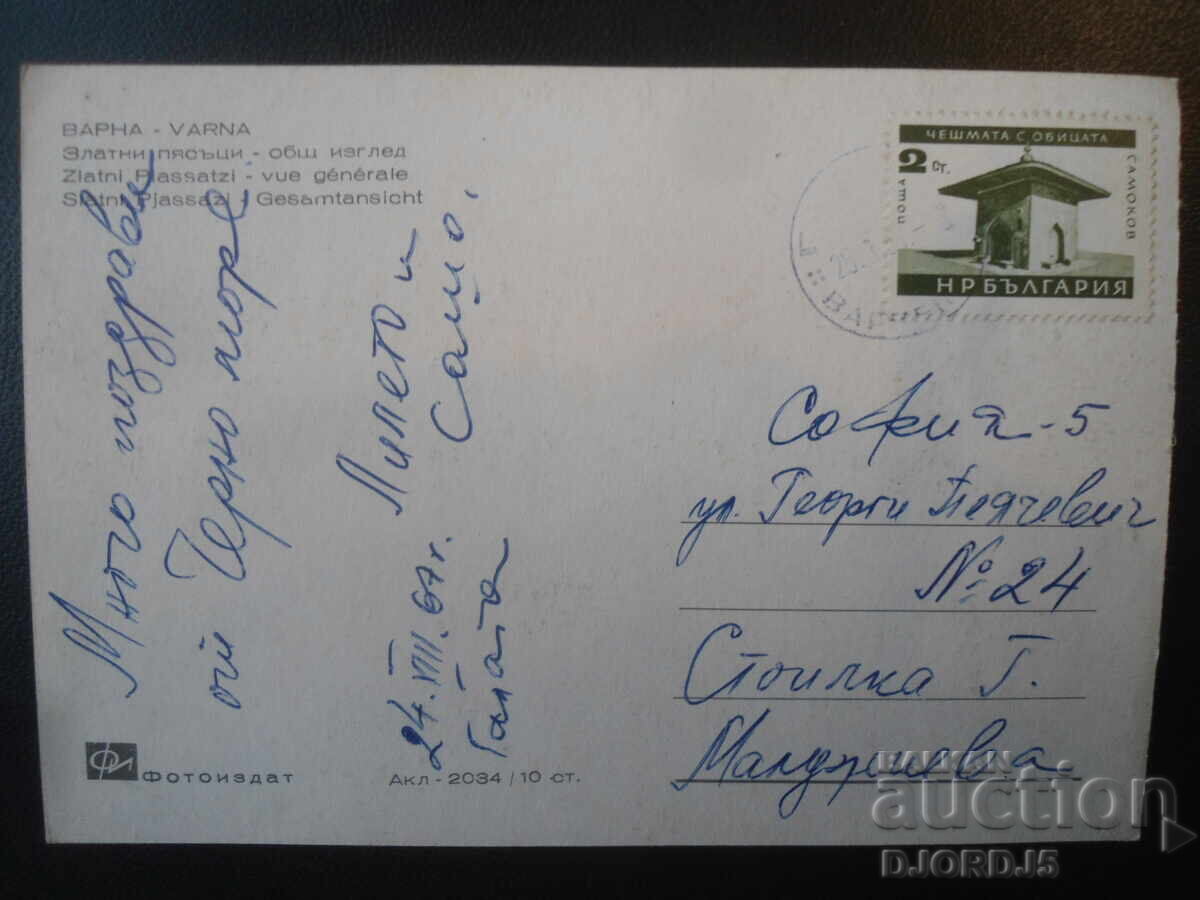 ВАРНА - VARNA
Златни пясъци - общ изглед
Zlatni Piassatzi - vue générale
Slatni Pjassazi - Gesamtansicht
Много поздрави
от Черно море.
Лилето и
Сашо.
24.VIII.67г.
ЧЕШМАТА С ОБИЦАТА
САМОКОВ
2 СТ.
ПОЩА
НР БЪЛГАРИЯ
ВАРНА
София-5
ул. Георги Пеячевич
№ 24
Стоилка Г.
Манджиева
Фотоиздат
Акл - 2034 / 10 ст.
BALKAN
auction
DJORDJ5